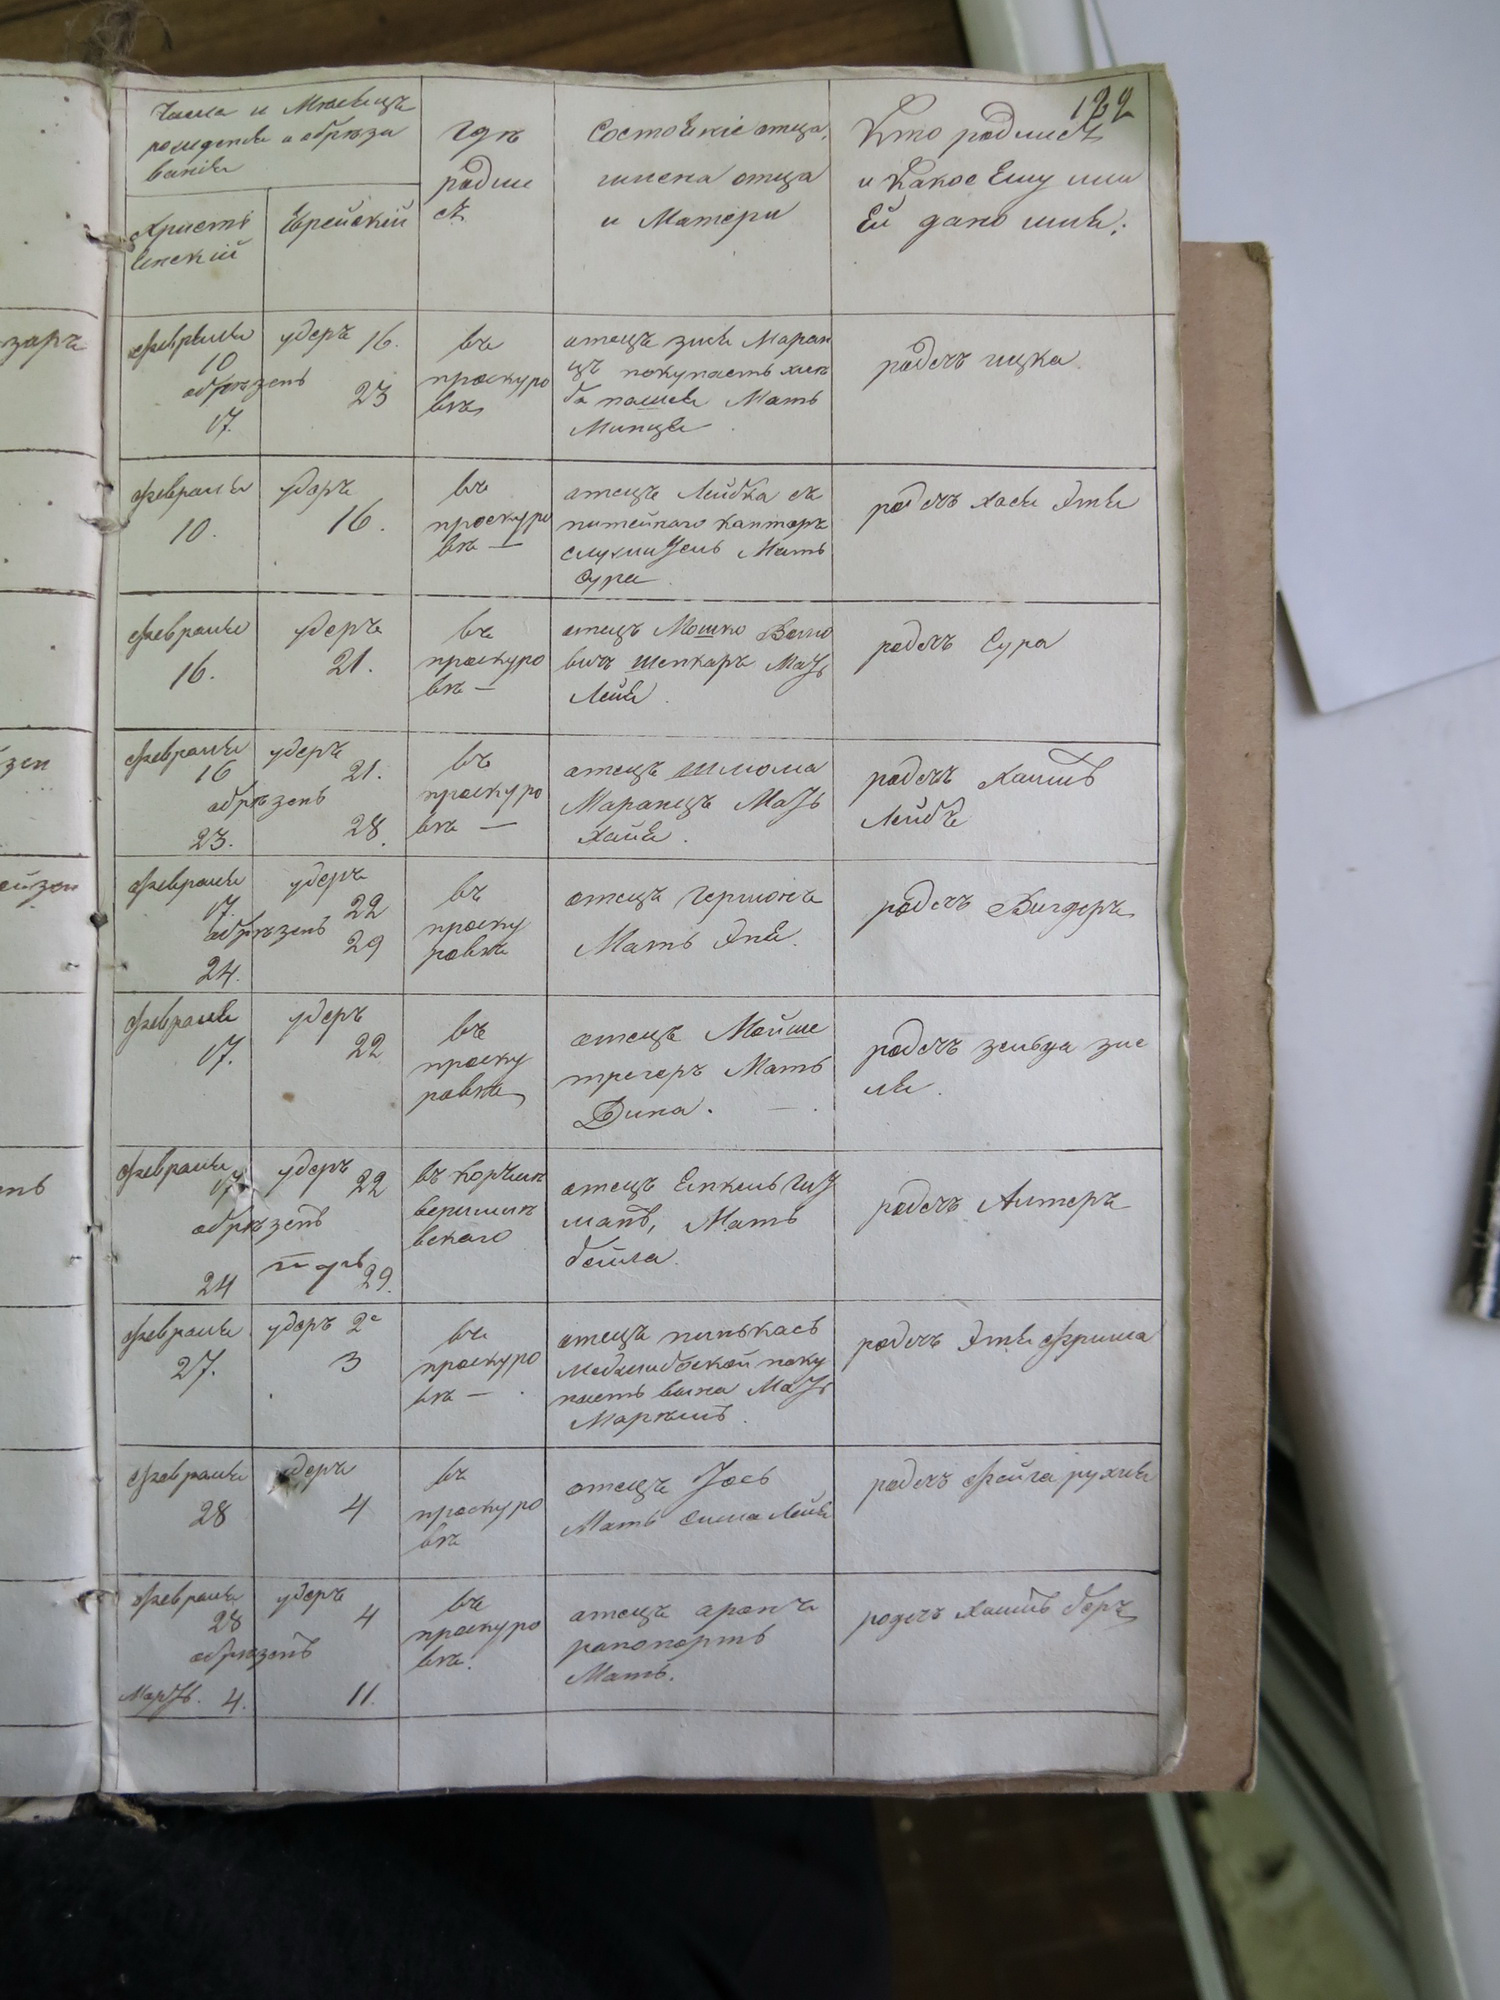 122
Числа и Месяцъ
рождения и обреза
ния
Христі
янскій
Еврейскій
Где
родил
ся
Состояніе отца,
имена отца
и Матери
Кто родился
и какое Ему или
Ей дано имя:
Февраля
10
обрезенъ
17.
удеръ 16.
23
въ
проскуро
ве
отецъ зися Маран
цъ покупаетъ хле
ба пашея Мать
Минця
родесъ ицка
Февраля
10.
удеръ
16.
въ
проскуро
ве —
отецъ Лейбка съ
питейнаго кантора
служитель Мать
Сура
родесъ хася Этя
Февраля
16.
удеръ
21.
въ
проскуро
ве —
отецъ Мошко Волко
вичъ шенкаръ Мать
Лейя
родесъ Сура
Февраля
16
обрезенъ
23.
удеръ
21.
28.
въ
проскуро
ве —
отецъ шлома
Маранецъ Мать
хайя
родесъ Хаимъ
Лейбъ
Февраля
17.
обрезенъ
24.
удеръ
22
29
въ
проску
рове
отецъ гершонъ
Мать Эня
родесъ Вигдеръ
Февраля
17.
удеръ
22
въ
проску
рове
отецъ Мойше
трегеръ Мать
Дина.
родесъ зельда зис
ля.
Февраля
17
обрезенъ
24
удеръ
22
29.
въ корчме
вскаго
отецъ
Мать
бейла
родесъ Алтеръ
Февраля
27.
удеръ 2е
3
въ
проскуро
ве —
отецъ пинькасъ
Меджибоской поку
паетъ вина Мать
Маръемъ
родесъ Этя Фрима
Февраля
28
удеръ
4
въ
проскуро
ве
отецъ Йось
Мать Сима Лейя
родесъ Фейга рухля
Февраля
28
обрезенъ
Мартъ. 4.
удеръ
4
11.
въ
проскуро
ве.
отецъ аронъ
рапопортъ
Мать.
родесъ хаимъ беръ